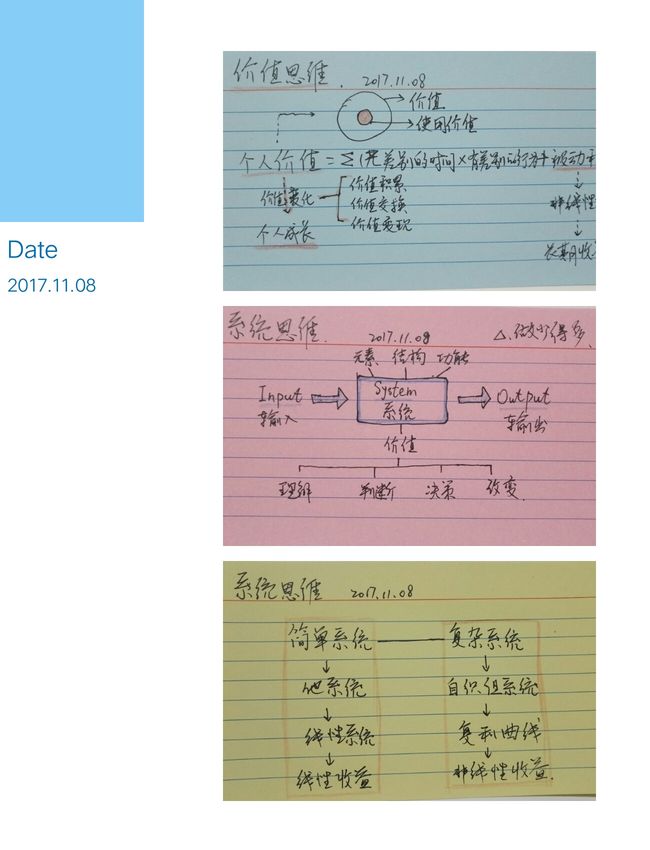 Date
2017.11.08
价值思维. 2017.11.08
价值
使用价值
个人价值 = Σ(无差别的时间×有差别的行为)+被动
价值量化
价值积累
价值交换
价值变现
个人成长
非线性
长期收
系统思维. 2017.11.08 △.做少得多.
元素 结构 功能
Input
输入
System
系统
Output
输出
价值
理解 判断 决策 改变.
系统思维 2017.11.08
简单系统 复杂系统
他系统 自组织系统
线性系统 复利曲线
线性收益 非线性收益.